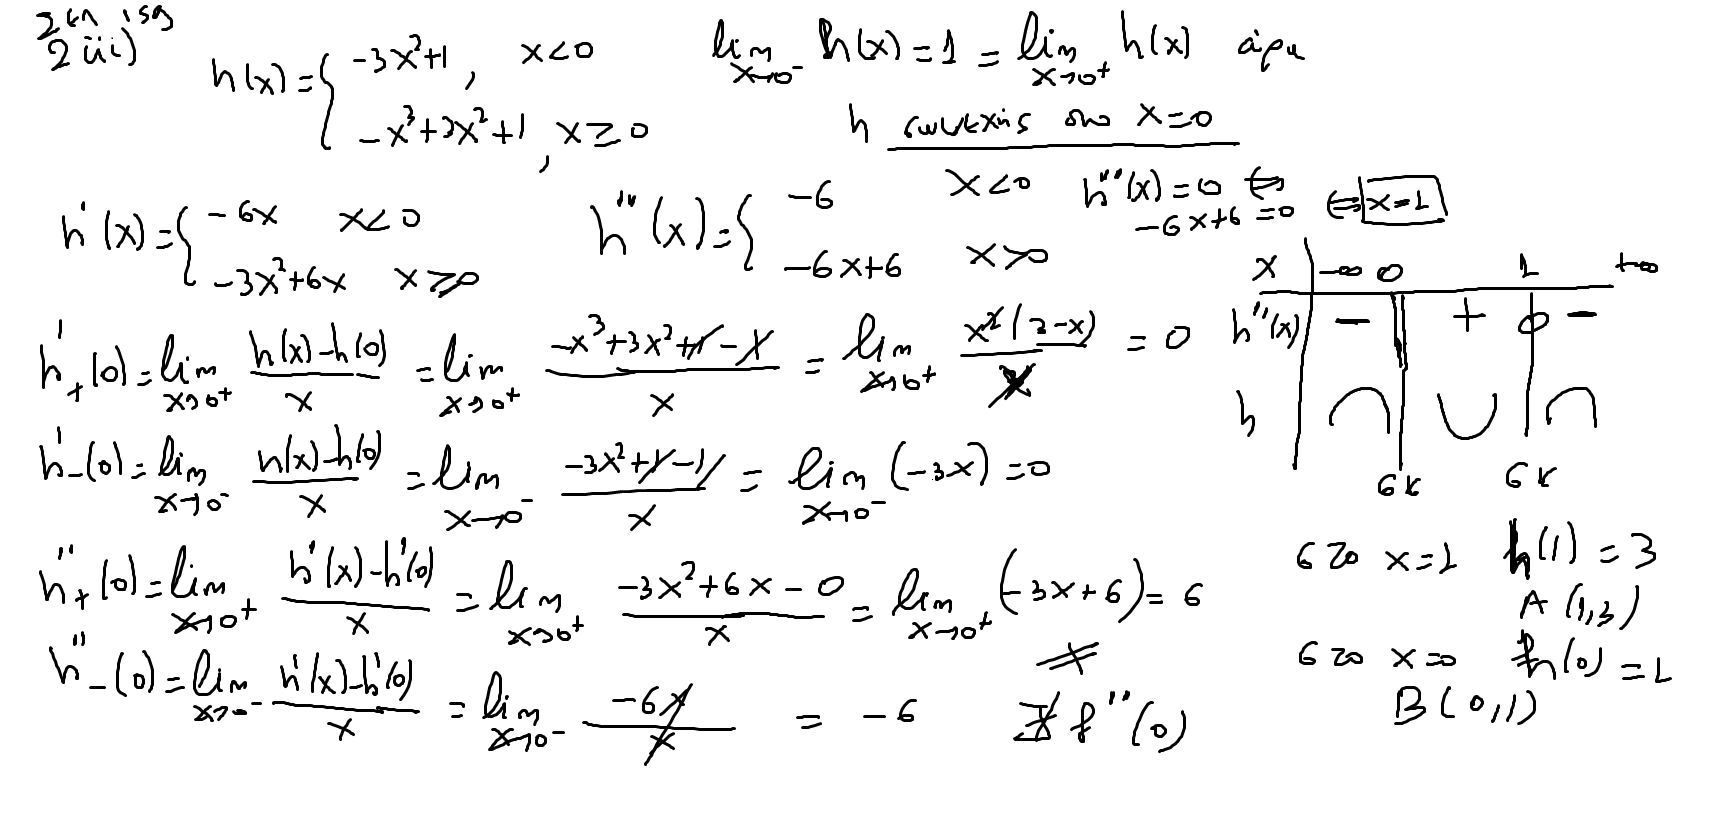 2 üi)
h(x) = { -3x²+1 , x<0
-x³+3x²+1 , x≥0
lim x→0⁻ h(x) = 1 = lim x→0⁺ h(x) άρα
h συνεχής στο x=0
h'(x) = { -6x x<0
-3x²+6x x≥0
h''(x) = { -6 x<0
-6x+6 x>0
h''(x) = 0 ⇔
-6x+6 = 0 ⇔ x=1
x | -∞ 0 1 +∞
h''(x) | - || + 0 -
h | ∩ ∪ ∩
σκ σκ
h'₊(0) = lim x→0⁺ (h(x)-h(0))/x = lim x→0⁺ (-x³+3x²+1-1)/x = lim x→0⁺ x²(3-x)/x = 0
h'₋(0) = lim x→0⁻ (h(x)-h(0))/x = lim x→0⁻ (-3x²+1-1)/x = lim x→0⁻ (-3x) = 0
h''₊(0) = lim x→0⁺ (h'(x)-h'(0))/x = lim x→0⁺ (-3x²+6x-0)/x = lim x→0⁺ (-3x+6) = 6
≠
h''₋(0) = lim x→0⁻ (h'(x)-h'(0))/x = lim x→0⁻ -6x/x = -6 ∄ f''(0)
στο x=1 h(1) = 3
A(1,3)
στο x=0 h(0) = 1
B(0,1)